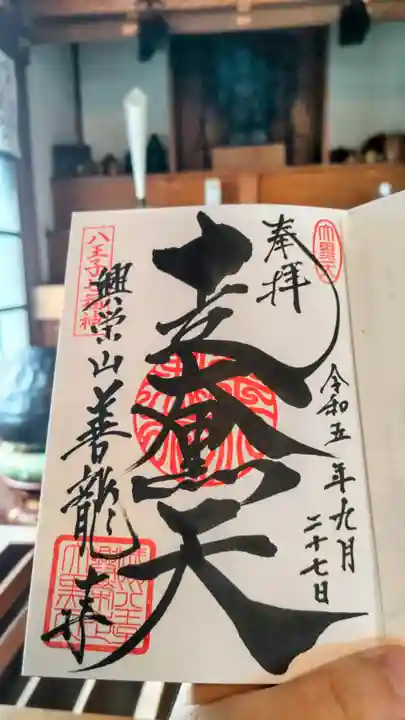 大黒天
奉拝
令和五年九月二十七日
走大黒天
八王子七福神
興栄山善龍寺